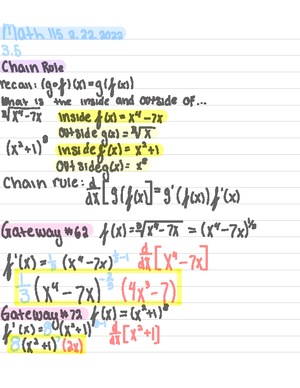 Math 115 8.22.2022
3.5
Chain Rule
recall: (g∘f)(x)=g(f(x))
What is the inside and outside of...
∛x⁴-7x inside f(x)=x⁴-7x
outside g(x)=∛x
(x²+1)⁸ inside f(x)=x²+1
outside g(x)=x⁸
Chain rule: d/dx[g(f(x)]=g'(f(x))f'(x)
Gateway #62 f(x)=∛x⁴-7x = (x⁴-7x)^1/3
f'(x)=1/3(x⁴-7x)^1/3-1 d/dx[x⁴-7x]
1/3(x⁴-7x)^-2/3 (4x³-7)
Gateway #72 f(x)=(x²+1)⁸
f'(x)=8(x²+1)⁸⁻¹ d/dx[x²+1]
8(x²+1)⁷(2x)